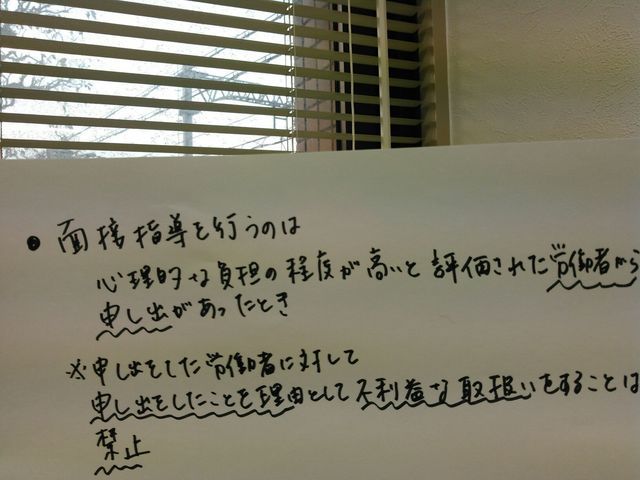 • 面接指導を行うのは
心理的な負担の程度が高いと評価された労働者から
申し出があったとき
※申し出をした労働者に対して
申し出をしたことを理由として不利益な取扱いをすることは
禁止